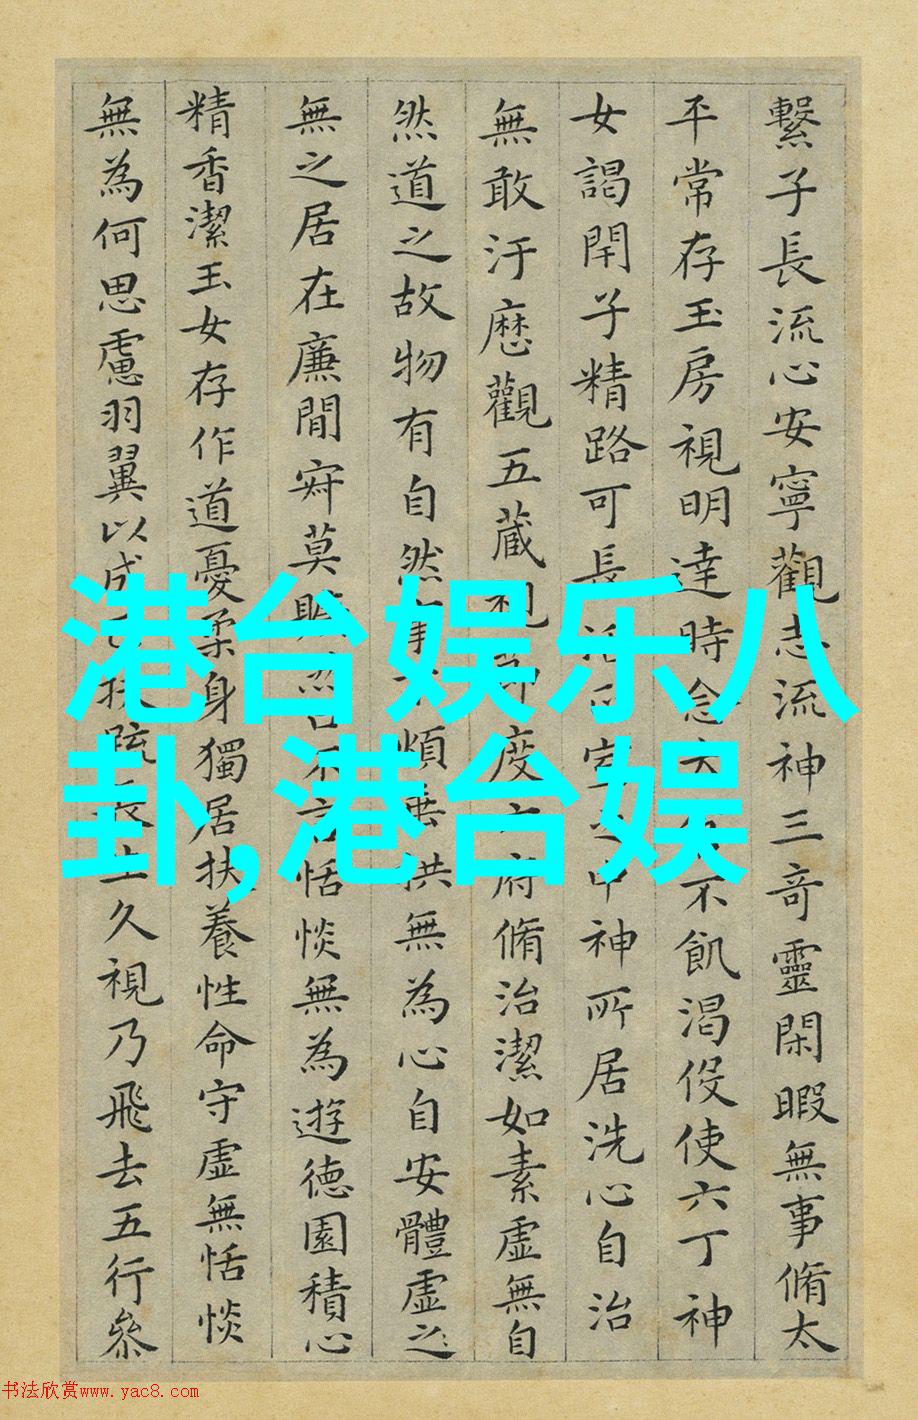 繫子長流心安寧觀志流神三奇靈閑暇無事脩太
平常存玉房視明達時念不飢渴伇使六丁神
女謁閇子精路可長中神所居洗心自治
無敢汙歷觀五藏視度府脩治潔如素虛無自
然道之故物有自然事煩垂拱無為心自安體虛之
無之居在廉間寂莫言恬惔無為遊德園積心
精香潔玉女存作道憂柔身獨居扶養性命守虛無恬惔
無為何思慮羽翼以成扶疏長生久視乃飛去五行參
港台娱乐八
卦,港台娱
书法欣赏www.yac8.com